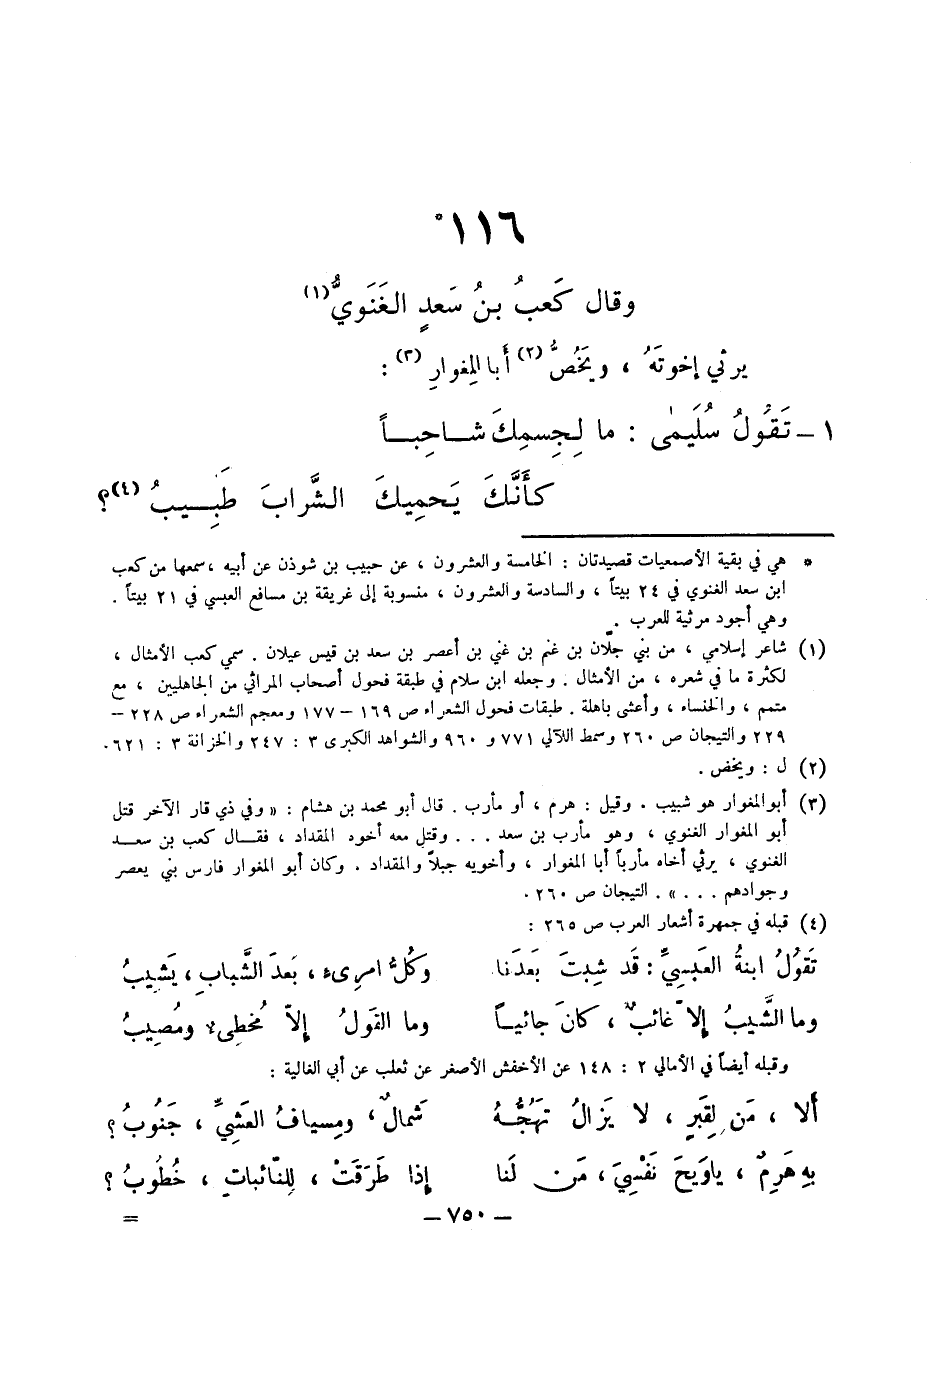 ١١٦*
وقال كَعبُ بنُ سَعدٍ الغَنَويُّ(١)
يرثي إخوتَهُ ، ويَخُصُّ(٢) أَبا المِغوارِ(٣) :
١ – تَقُولُ سُلَيمٰى : ما لِجِسمِكَ شاحِباً
كأَنَّكَ يَحمِيكَ الشَّرابَ طَبِيبُ(٤)؟
* هي في بقية الأصمعيات قصيدتان : الخامسة والعشرون ، عن حبيب بن شوذن عن أبيه ، سمعها من كعب
ابن سعد الغنوي في ٢٤ بيتاً ، والسادسة والعشرون ، منسوبة إلى غريقة بن مسافع العبسي في ٢١ بيتاً .
وهي أجود مرثية للعرب .
(١) شاعر إسلامي ، من بني جلّان بن غنم بن غني بن أعصر بن سعد بن قيس عيلان . سمي كعب الأمثال ،
لكثرة ما في شعره ، من الأمثال . وجعله ابن سلام في طبقة فحول أصحاب المراثي من الجاهليين ، مع
متمم ، والخنساء ، وأعشى باهلة . طبقات فحول الشعراء ص ١٦٩ – ١٧٧ ومعجم الشعراء ص ٢٢٨ –
٢٢٩ والتيجان ص ٢٦٠ وسمط اللآلي ٧٧١ و ٩٦٠ والشواهد الكبرى ٣ : ٢٤٧ والخزانة ٣ : ٦٢١ .
(٢) ل : ويخض .
(٣) أبو المغوار هو شبيب . وقيل : هرم ، أو مأرب . قال أبو محمد بن هشام : « وفي ذي قار الآخر قتل
أبو المغوار الغنوي ، وهو مأرب بن سعد . . . وقتل معه أخوه المقداد ، فقال كعب بن سعد
الغنوي ، يرثي أخاه مأرباً أبا المغوار ، وأخويه جبلاً والمقداد . وكان أبو المغوار فارس بني يعصر
وجوادهم . . . » . التيجان ص ٢٦٠ .
(٤) قبله في جمهرة أشعار العرب ص ٢٦٥ :
تَقُولُ ابنةُ العَبسِيِّ : قَد شِبتَ بَعدَنا وكُلُّ امرِىءٍ ، بَعدَ الشَّبابِ ، يَشِيبُ
وما الشَّيبُ إلاّ غائبٌ ، كانَ جائياً وما القَولُ إلاّ مُخطِىءٌ ومُصِيبُ
وقبله أيضاً في الأمالي ٢ : ١٤٨ عن الأخفش الأصغر عن ثعلب عن أبي الغالية :
ألا ، مَن لِقبرٍ ، لا يَزالُ تَهُجُّهُ شَمالٌ ، ومِسيافُ العَشِيِّ ، جَنُوبُ ؟
بِهِ هَرِمٌ ، ياوَيحَ نَفْسِيَ ، مَن لَنا إذا طَرَقَتْ ، لِلنّائباتِ ، خُطُوبُ ؟
– ٧٥٠ –
=